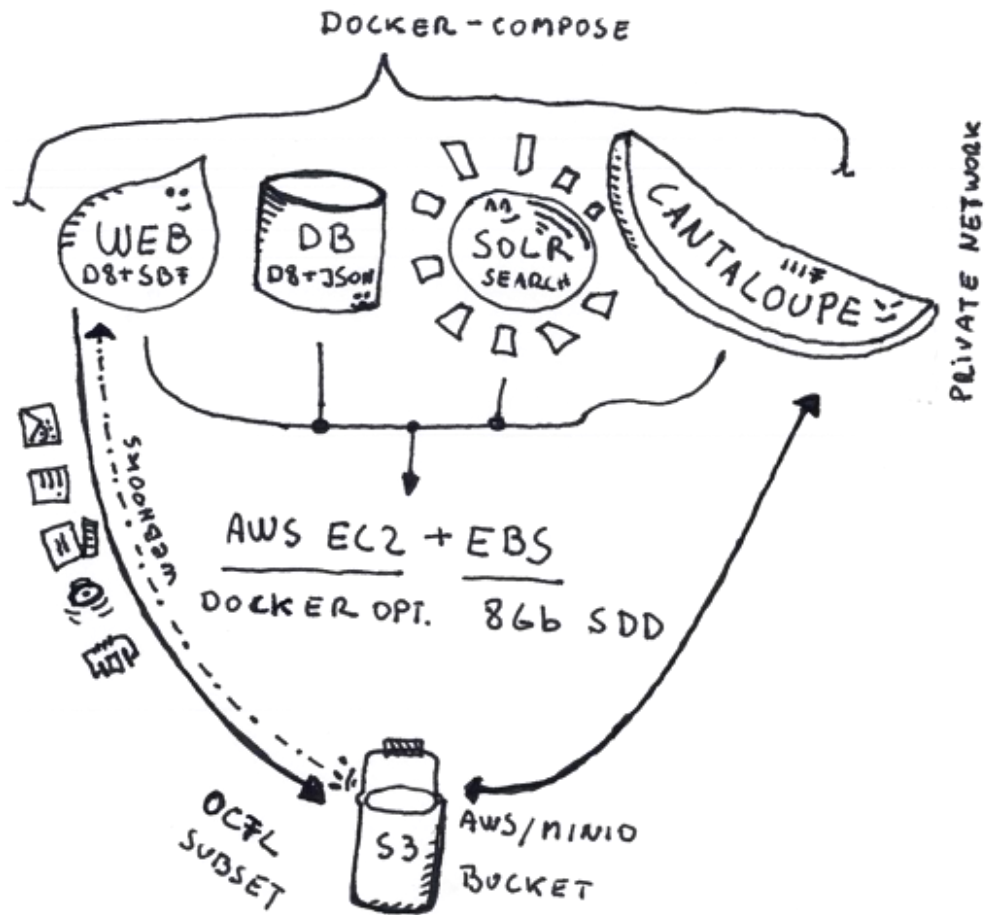 DOCKER-COMPOSE
WEB
D8+SBF
DB
D8+JSON
SOLR
SEARCH
CANTALOUPE
IIIF
PRIVATE NETWORK
WEBHOOKS
AWS EC2 + EBS
DOCKER OPT. 8Gb SDD
OCFL
SUBSET
S3
AWS/MINIO
BUCKET